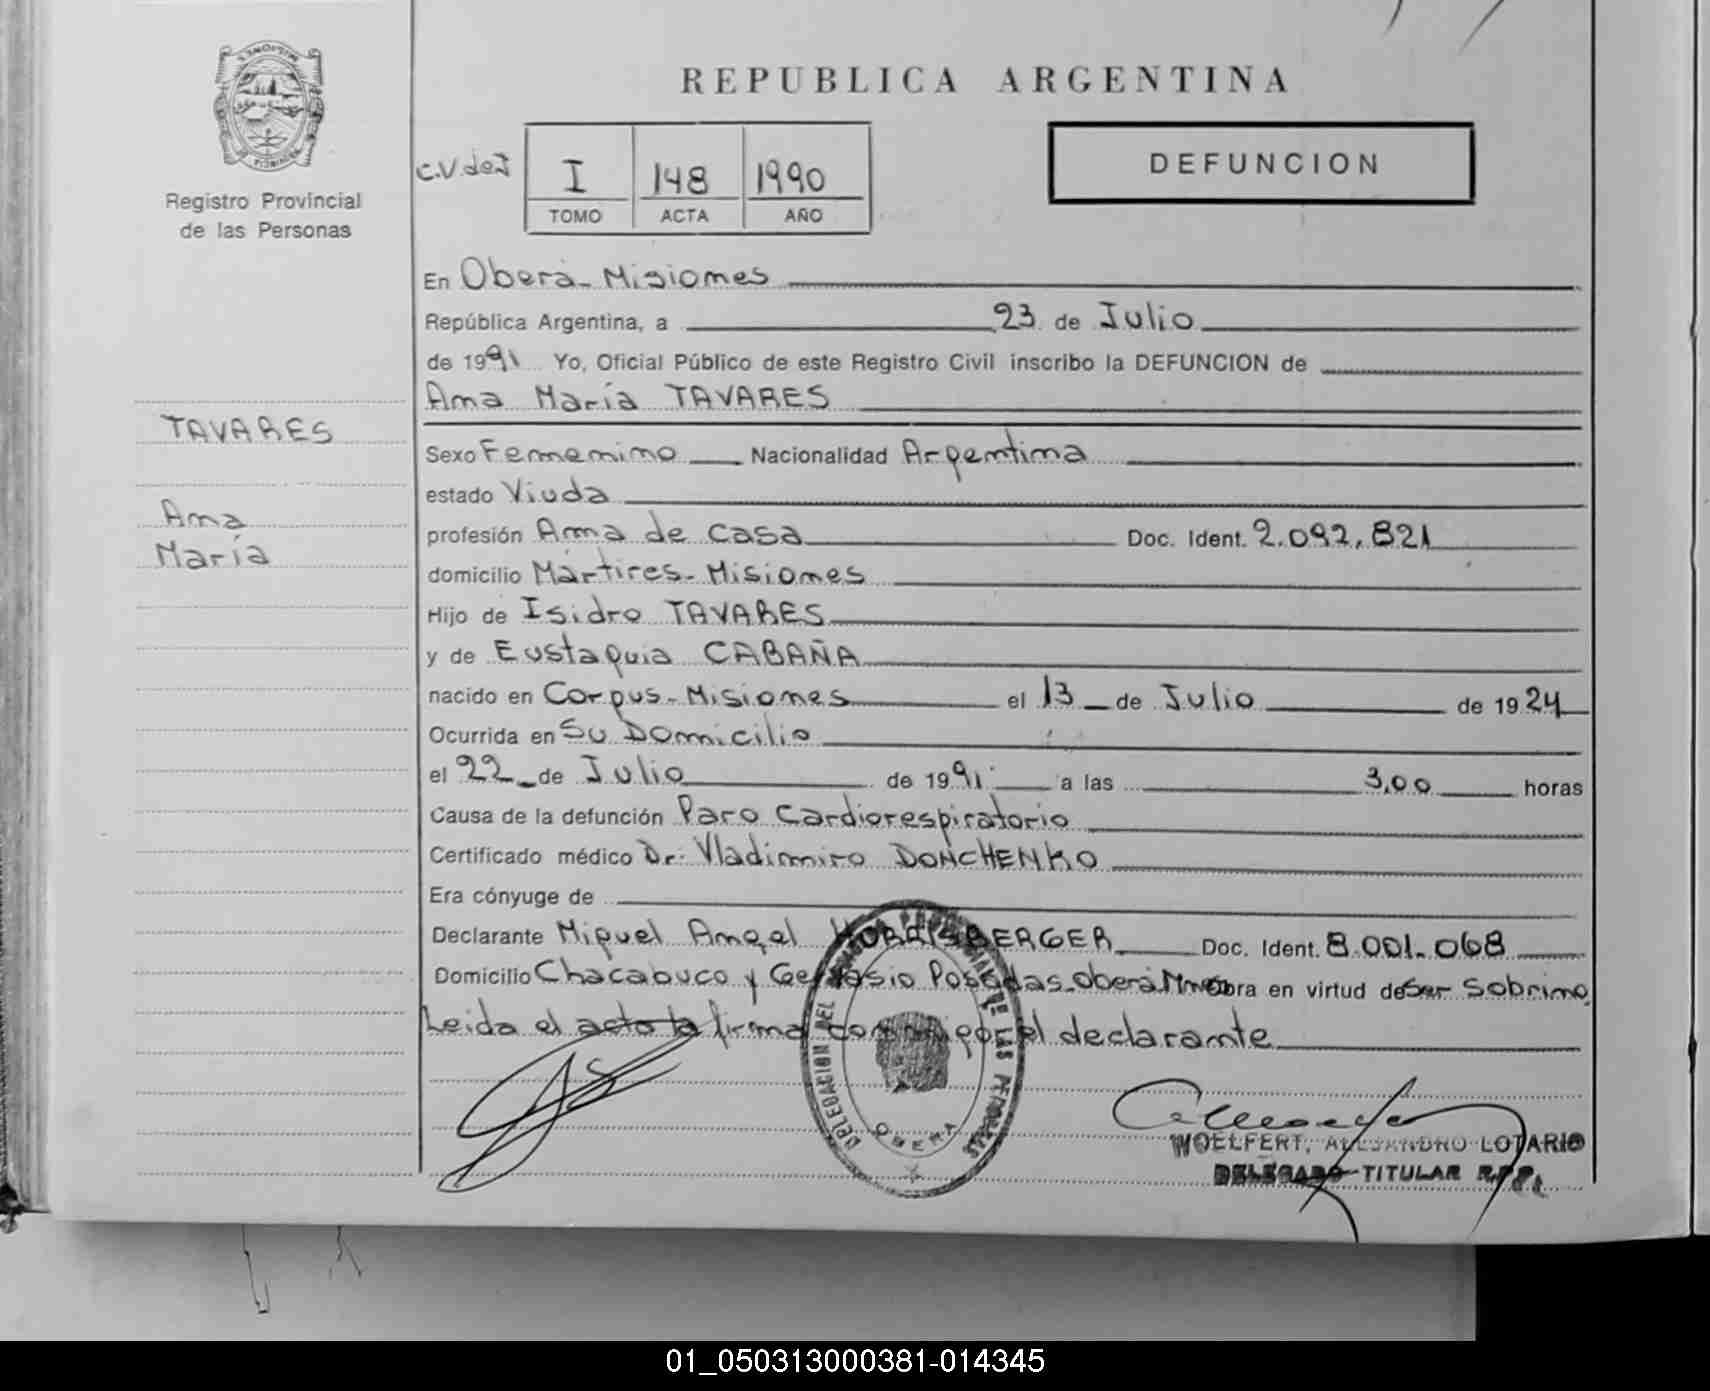 MISIONES
REPUBLICA ARGENTINA
Registro Provincial
de las Personas
I 148 1990
TOMO ACTA AÑO
DEFUNCION
En Oberá - Misiones
República Argentina, a 23 de Julio
de 1991 Yo, Oficial Público de este Registro Civil inscribo la DEFUNCION de
Ana María TAVARES
TAVARES
Ana
María
Sexo Femenino Nacionalidad Argentina
estado Viuda
profesión Ama de casa Doc. Ident. 2.092.821
domicilio Mártires - Misiones
Hijo de Isidro TAVARES
y de Eustaquia CABAÑA
nacido en Corpus - Misiones el 13 de Julio de 1924
Ocurrida en Su Domicilio
el 22 de Julio de 1991 a las 3,00 horas
Causa de la defunción Paro Cardiorespiratorio
Certificado médico Dr. Vladimiro DONCHENKO
Era cónyuge de
Declarante Miguel Angel Doc. Ident. 8.001.068
Domicilio Chacabuco y Gervasio Posadas - Oberá Mnes obra en virtud de ser sobrino
Leida el acta la firma conmigo el declarante
DELEGACION DEL REGISTRO PROVINCIAL DE LAS PERSONAS
OBERA
WOELFERT, ALEJANDRO LOTARIO
DELEGADO TITULAR R.P.P.
01_050313000381-014345